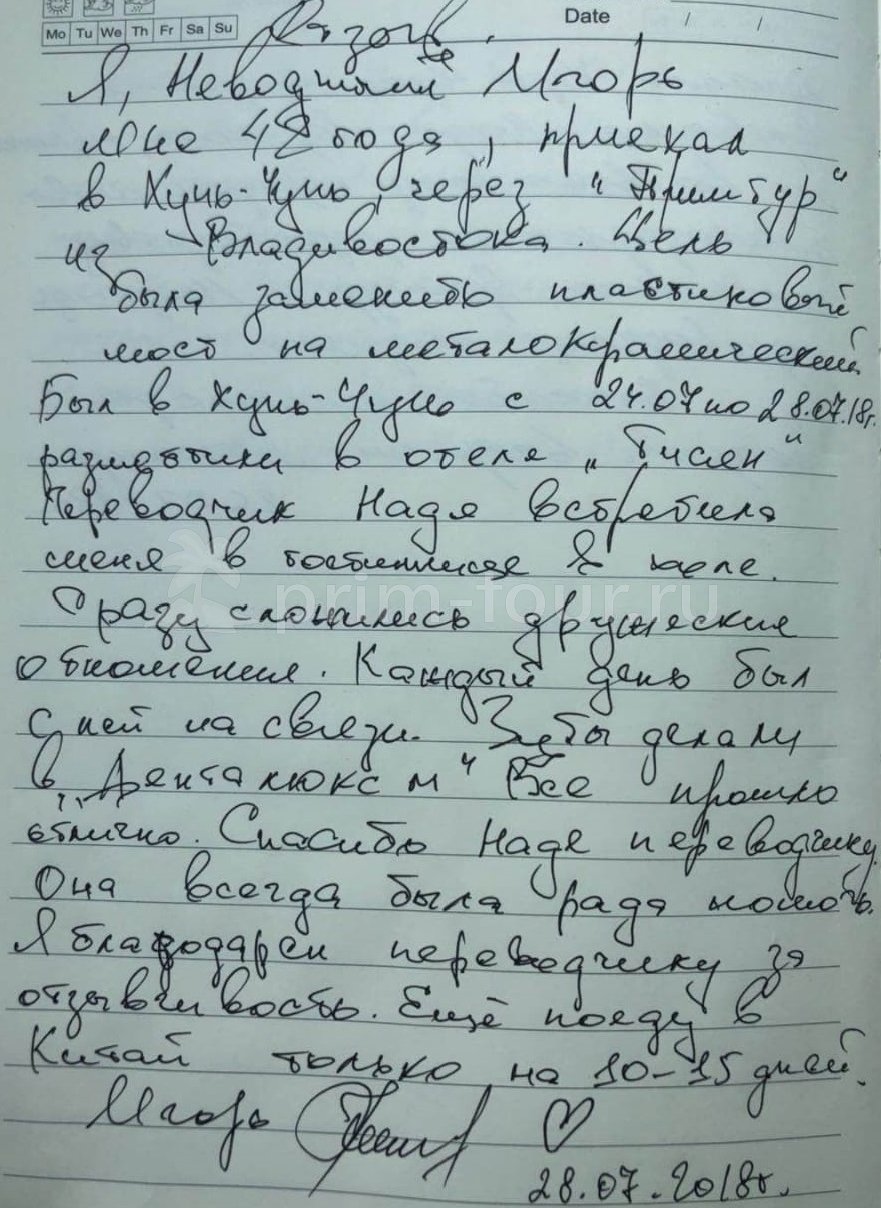 Mo Tu We Th Fr Sa Su
Date / /
Отзыв.
Я, Игорь
мне 42 года, приехал
в Хунь-Чунь, через "Примтур"
из Владивостока. Цель
была заменить пластиковый
мост на металокерамический
Был в Хунь-Чунь с 24.07 по 28.07.18г.
разместили в отеле "Тисен"
Переводчик Надя встретила
меня в гостиннице в холе.
Сразу сложились дружеские
отношения. Каждый день был
с ней на связи. Зубы делали
в "Дента люкс м" Все прошло
отлично. Спасибо Наде переводчику.
Она всегда была рада помочь.
Я благодарен переводчику за
отзывчивость. Ещё поеду в
Китай только на 10-15 дней.
Игорь
28.07.2018г.
prim-tour.ru